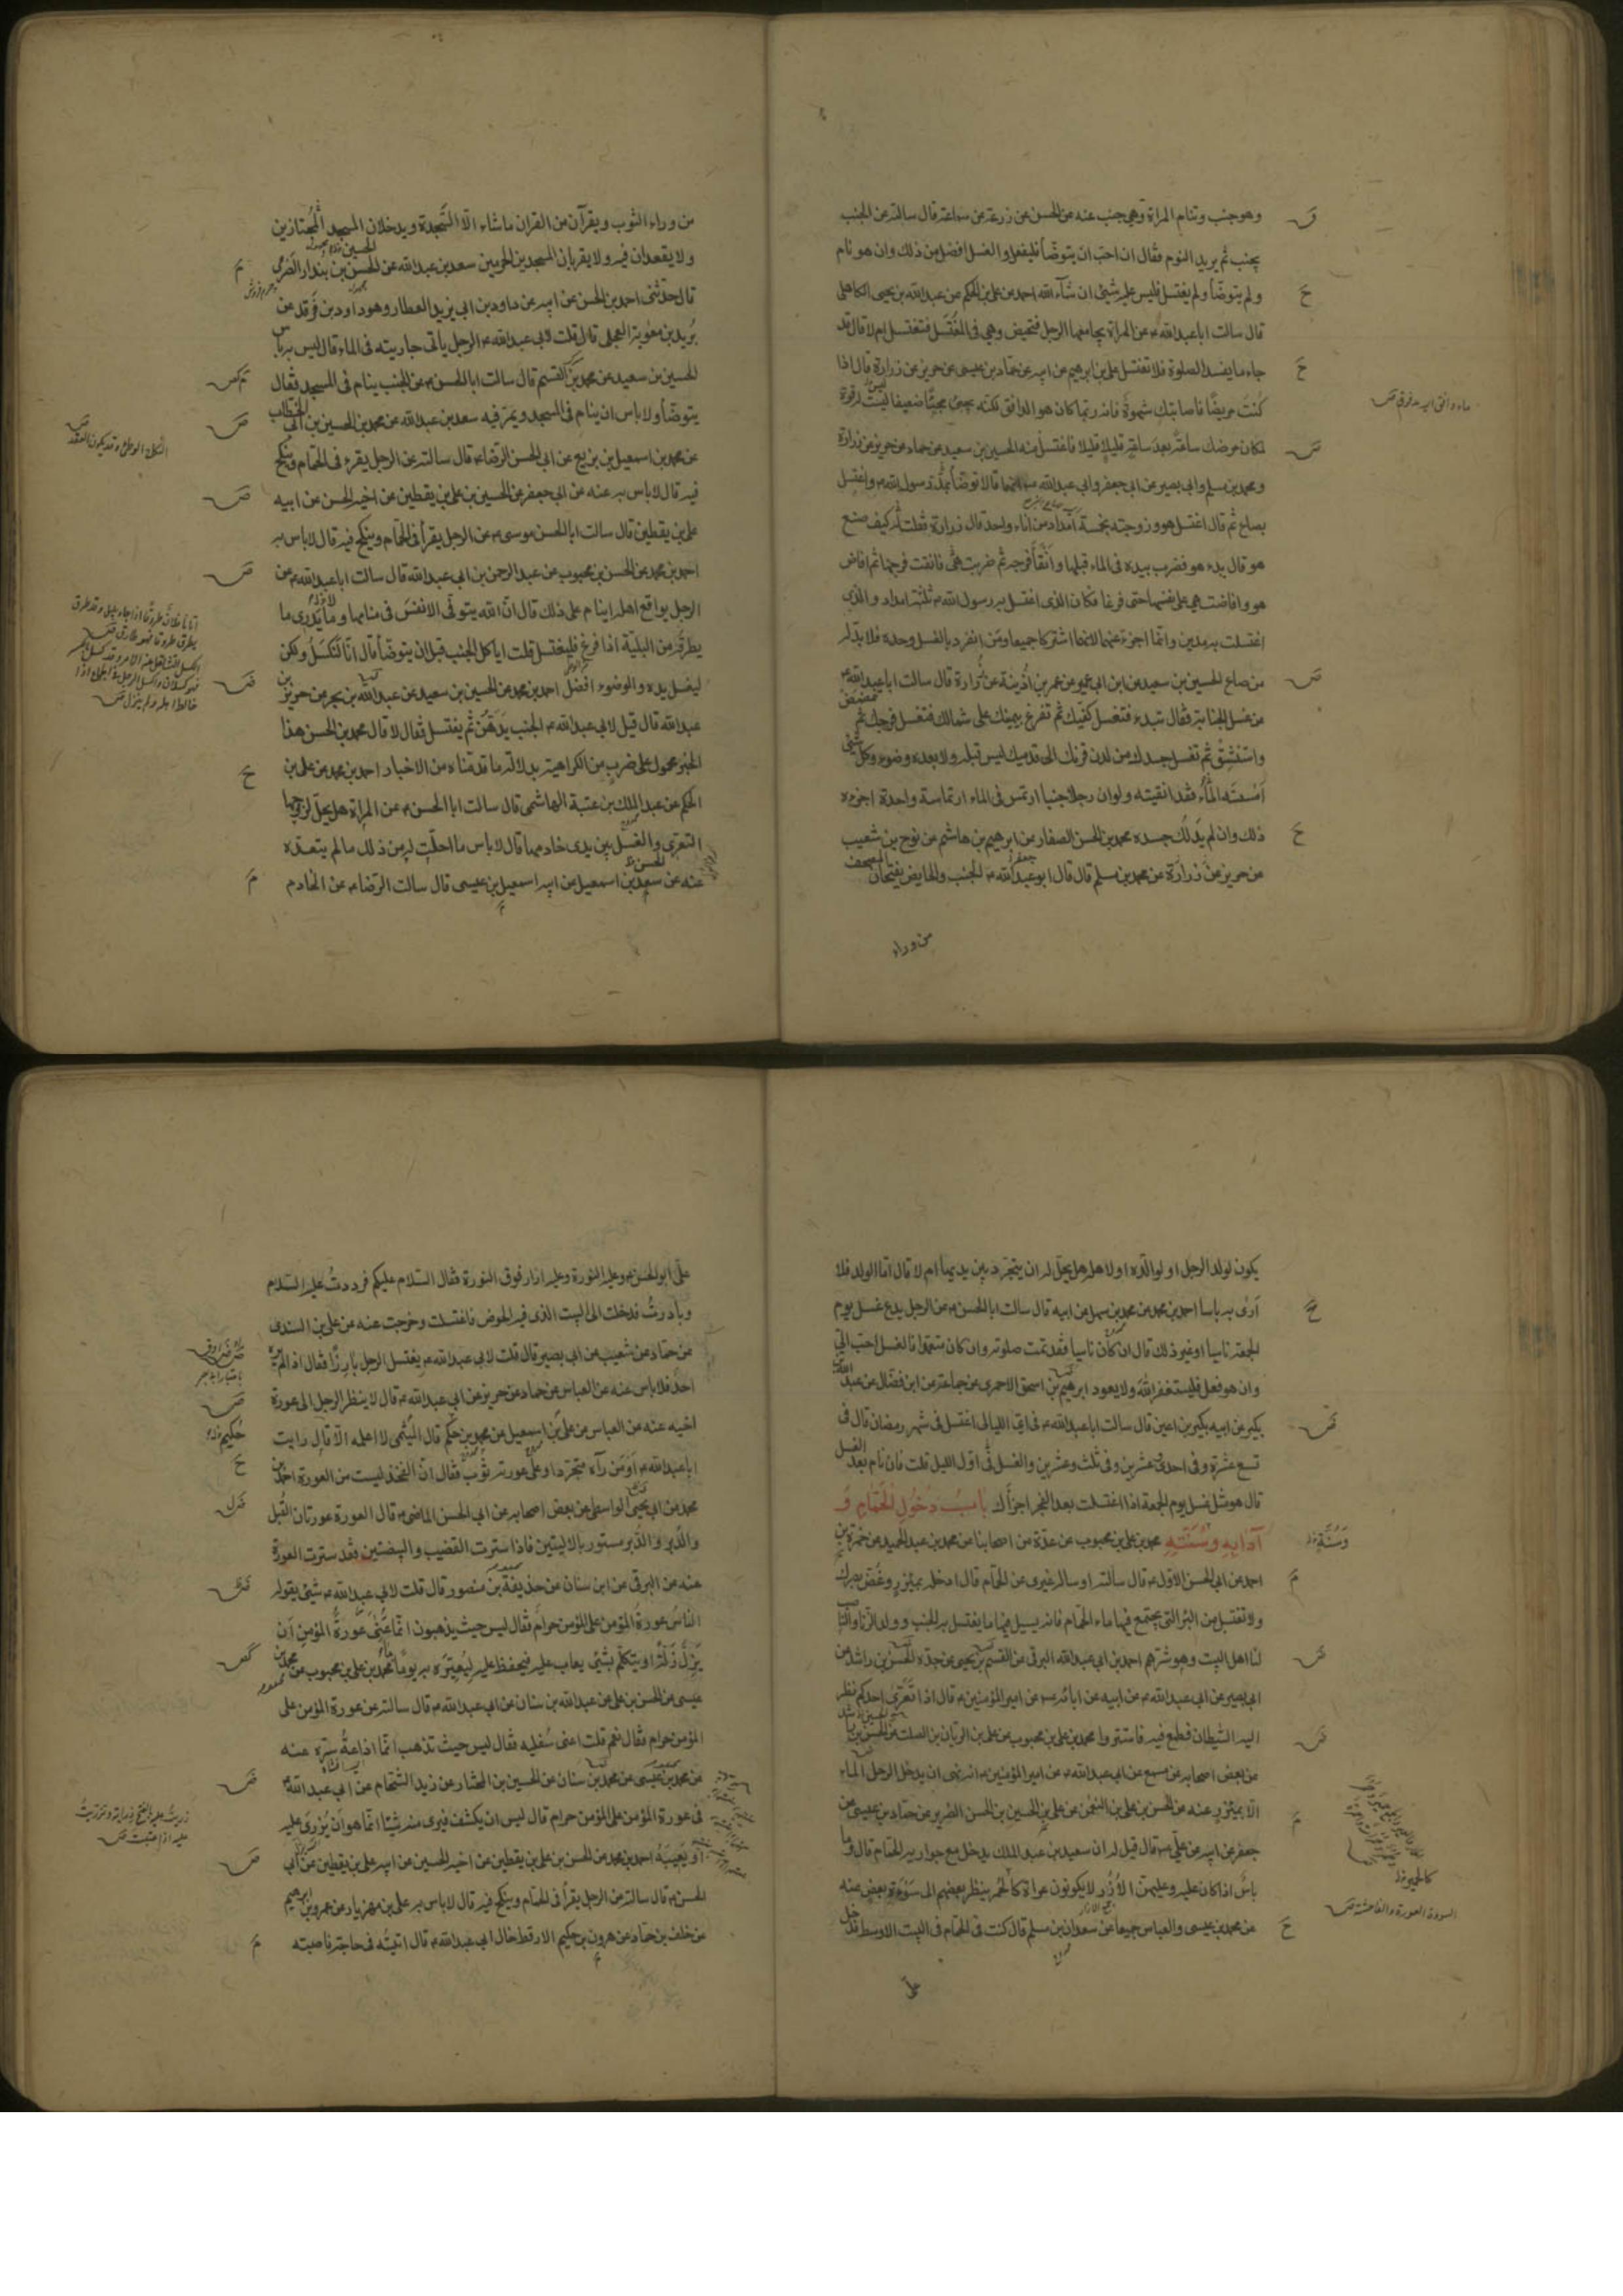 وهو جنب وتنام المراة وهي جنب عنه عن الحسن عن زرعة عن سماعة قال سالته عن الجنب
يجنب ثم يريد النوم فقال ان احب ان يتوضأ فليفعل والغسل افضل من ذلك وان هو نام
ولم يتوضأ ولم يغتسل فليس عليه شيئ ان شآء الله احمد عن علي بن الحكم عن عبد الله بن يحيى الكاهلي
قال سالت ابا عبد الله ع عن المراة يجامعها الرجل فتحيض وهي في المغتسل فتغتسل ام لا قال قد
جاء ما يفسد الصلوة فلا تغتسل علي بن ابرهيم عن ابيه عن حماد بن عيسى عن حريز عن زرارة قال اذا
كنت مريضًا فاصابتك شهوة فانه ربما كان هو الدافق لكنه يجيئ مجيئًا ضعيفا ليست له قوة
لمكان مرضك ساعة بعد ساعة قليلا قليلا فاغتسل منه الحسين بن سعيد عن حماد عن حريز عن زرارة
ومحمد بن مسلم وابي بصير عن ابي جعفر وابي عبد الله ع انهما قالا توضأ بمد رسول الله ص واغتسل
بصاع ثم قال اغتسل هو وزوجته بخمسة امداد من اناء واحد قال زرارة فقلت له كيف صنع
هو قال بدء هو فضرب بيده في الماء قبلها وانقا فرجه ثم ضربت هي فانقت فرجها ثم افاض
هو وافاضت هي على نفسها حتى فرغا فكان الذي اغتسل به رسول الله ص ثلثة امداد والذي
اغتسلت به مدين وانما اجزء عنهما لانهما اشتركا جميعا ومن انفرد بالغسل وحده فلا بد له
من صاع الحسين بن سعيد عن ابن ابي عمير عن عمر بن اذينة عن زرارة قال سالت ابا عبد الله ع
عن غسل الجنابة فقال تبدء فتغسل كفيك ثم تفرغ بيمينك على شمالك فتغسل فرجك ثم تمضمض
واستنشق ثم تغسل جسدك من لدن قرنك الى قدميك ليس قبله ولا بعده وضوء وكل شيئ
امسسته الماء فقد انقيته ولو ان رجلا جنبا ارتمس في الماء ارتماسة واحدة اجزءه
ذلك وان لم يدلك جسده محمد بن الحسن الصفار عن ابرهيم بن هاشم عن نوح بن شعيب
عن حريز عن زرارة عن محمد بن مسلم قال قال ابو عبد الله ع الجنب والحايض يفتحان المصحف
من وراء
من وراء الثوب ويقرآن من القران ما شاء الا السجدة ويدخلان المسجد مجتازين
ولا يقعدان فيه ولا يقربان المسجدين الحرمين سعد بن عبد الله عن الحسن بن بندار الصرمي
قال حدثني احمد بن الحسن عن ابيه عن داود بن ابي يزيد العطار وهو داود بن فرقد عن
بريد بن معوية العجلي قال قلت لابي عبد الله ع الرجل ياتي جاريته في الماء قال ليس به باس
الحسين بن سعيد عن محمد بن القسم قال سالت ابا الحسن ع عن الجنب ينام في المسجد فقال
يتوضأ ولا باس ان ينام في المسجد ويمر فيه سعد بن عبد الله عن محمد بن الحسين بن ابي الخطاب
عن محمد بن اسمعيل بن بزيع عن ابي الحسن الرضا ع قال سالته عن الرجل يقرء في الحمام وينكح
فيه قال لا باس به عنه عن ابي جعفر عن الحسين بن علي بن يقطين عن اخيه الحسن عن ابيه
علي بن يقطين قال سالت ابا الحسن موسى ع عن الرجل يقرأ في الحمام وينكح فيه قال لا باس به
احمد بن محمد عن الحسن بن محبوب عن عبد الرحمن بن ابي عبد الله قال سالت ابا عبد الله ع عن
الرجل يواقع اهله اينام على ذلك قال ان الله يتوفى الانفس في منامها وما يدرى ما
يطرقه من البلية اذا فرغ فليغتسل قلت اياكل الجنب قبل ان يتوضأ قال انا لنكسل ولكن
ليغسل يده والوضوء افضل احمد بن محمد عن الحسين بن سعيد عن عبد الله بن بحر عن حريز
عبد الله قال قيل لابي عبد الله ع الجنب يدهن ثم يغتسل فقال لا قال محمد بن الحسن هذا
الخبر محمول على ضرب من الكراهية بدلالة ما قدمناه من الاخبار احمد بن محمد عن علي بن
الحكم عن عبد الملك بن عتبة الهاشمي قال سالت ابا الحسن ع عن المراة هل يحل لزوجها
التعري والغسل بين يدي خادمها قال لا باس ما احلت له من ذلك ما لم يتعده
عنه عن سعد بن اسمعيل عن ابيه اسمعيل بن عيسى قال سالت الرضا ع عن الخادم
يكون لولد الرجل او لوالده او لاهله هل يحل له ان يتجرد بين يديها ام لا قال اما الولد فلا
ارى به باسا احمد بن محمد عن محمد بن سهل عن ابيه قال سالت ابا الحسن ع عن الرجل يدع غسل يوم
الجمعة ناسيا او غير ذلك قال ان كان ناسيا فقد تمت صلوته وان كان متعمدا فالغسل احب الي
وان هو فعل فليستغفر الله ولا يعود ابرهيم بن اسحق الاحمري عن جماعة عن ابن فضال عن عبد الله
بكير عن ابيه بكير بن اعين قال سالت ابا عبد الله ع في اي الليالي اغتسل في شهر رمضان قال في
تسع عشرة وفي احدى وعشرين وفي ثلث وعشرين والغسل في اول الليل قلت فان نام بعد الغسل
قال هو مثل غسل يوم الجمعة اذا اغتسلت بعد الفجر اجزأك باب دخول الحمام و
آدابه وسنته محمد بن علي بن محبوب عن عدة من اصحابنا عن محمد بن عبد الحميد عن حمزة بن
احمد عن ابي الحسن الاول ع قال سألته او ساله غيري عن الحمام قال ادخله بمئزر وغض بصرك
ولا تغتسل من البئر التي يجتمع فيها ماء الحمام فانه يسيل فيها ما يغتسل به الجنب وولد الزنا والناصب
لنا اهل البيت وهو شرهم احمد بن ابي عبد الله البرقي عن القسم بن يحيى عن جده الحسن بن راشد عن
ابي بصير عن ابي عبد الله ع عن ابيه عن ابائه عن امير المؤمنين ع قال اذا تعرى احدكم نظر
اليه الشيطان فطمع فيه فاستتروا محمد بن علي بن محبوب عن علي بن الريان بن الصلت عن الحسن بن راشد
عن بعض اصحابه عن مسمع عن ابي عبد الله ع عن امير المؤمنين ع انه نهى ان يدخل الرجل الماء
الا بمئزر عنه عن الحسن بن علي بن النعمن عن علي بن الحسين بن الحسن الضرير عن حماد بن عيسى عن
جعفر عن ابيه عن علي ع قال قيل له ان سعيد بن عبد الملك يدخل مع جواريه الحمام قال وما
باس اذا كان عليه وعليهن الازر لا يكونون عراة كالحمر ينظر بعضهم الى سوءة بعض عنه
عن محمد بن عيسى والعباس جميعا عن سعدان بن مسلم قال كنت في الحمام في البيت الاوسط فدخل
علي
علي ابو الحسن ع وعليه النورة وعليه ازار فوق النورة فقال السلام عليكم فرددت عليه السلام
وبادرت فدخلت الى البيت الذي فيه الحوض فاغتسلت وخرجت عنه عن علي بن السندي
عن حماد عن شعيب عن ابي بصير قال قلت لابي عبد الله ع يغتسل الرجل بارزا فقال اذا لم يره
احد فلا باس عنه عن العباس عن حماد عن حريز عن ابي عبد الله ع قال لا ينظر الرجل الى عورة
اخيه عنه عن العباس عن علي بن اسمعيل عن محمد بن حكم قال الميثمي لا اعلمه الا قال رايت
ابا عبد الله ع او من رآه متجردا وعلى عورته ثوب فقال ان الفخذ ليست من العورة احمد بن
محمد عن ابي يحيى الواسطي عن بعض اصحابه عن ابي الحسن الماضي ع قال العورة عورتان القبل
والدبر والدبر مستور بالاليتين فاذا سترت القضيب والبيضتين فقد سترت العورة
عنه عن البرقي عن ابن سنان عن حذيفة بن منصور قال قلت لابي عبد الله ع شيئ يقوله
الناس عورة المؤمن على المؤمن حرام فقال ليس حيث يذهبون انما عنى عورة المؤمن ان
يزل زلة او يتكلم بشيئ يعاب عليه فيحفظ عليه ليعيره به يوما محمد بن علي بن محبوب عن محمد بن
عيسى عن الحسن بن علي عن عبد الله بن سنان عن ابي عبد الله ع قال سالته عن عورة المؤمن على
المؤمن حرام فقال نعم قلت اعنى سفليه فقال ليس حيث تذهب انما اذاعة سره عنه
عن محمد بن عيسى عن محمد بن سنان عن الحسين بن المختار عن زيد الشحام عن ابي عبد الله ع
في عورة المؤمن على المؤمن حرام قال ليس ان يكشف فيرى منه شيئا انما هو ان يزرى عليه
او يعيبه احمد بن محمد عن الحسن بن علي بن يقطين عن اخيه الحسين عن ابيه علي بن يقطين عن ابي
الحسن ع قال سالته عن الرجل يقرأ في الحمام وينكح فيه قال لا باس به علي بن مهزيار عن عمرو بن ابرهيم
عن خلف بن حماد عن هرون بن حكيم الارقط خال ابي عبد الله ع قال اتيته في حاجة فاصبته